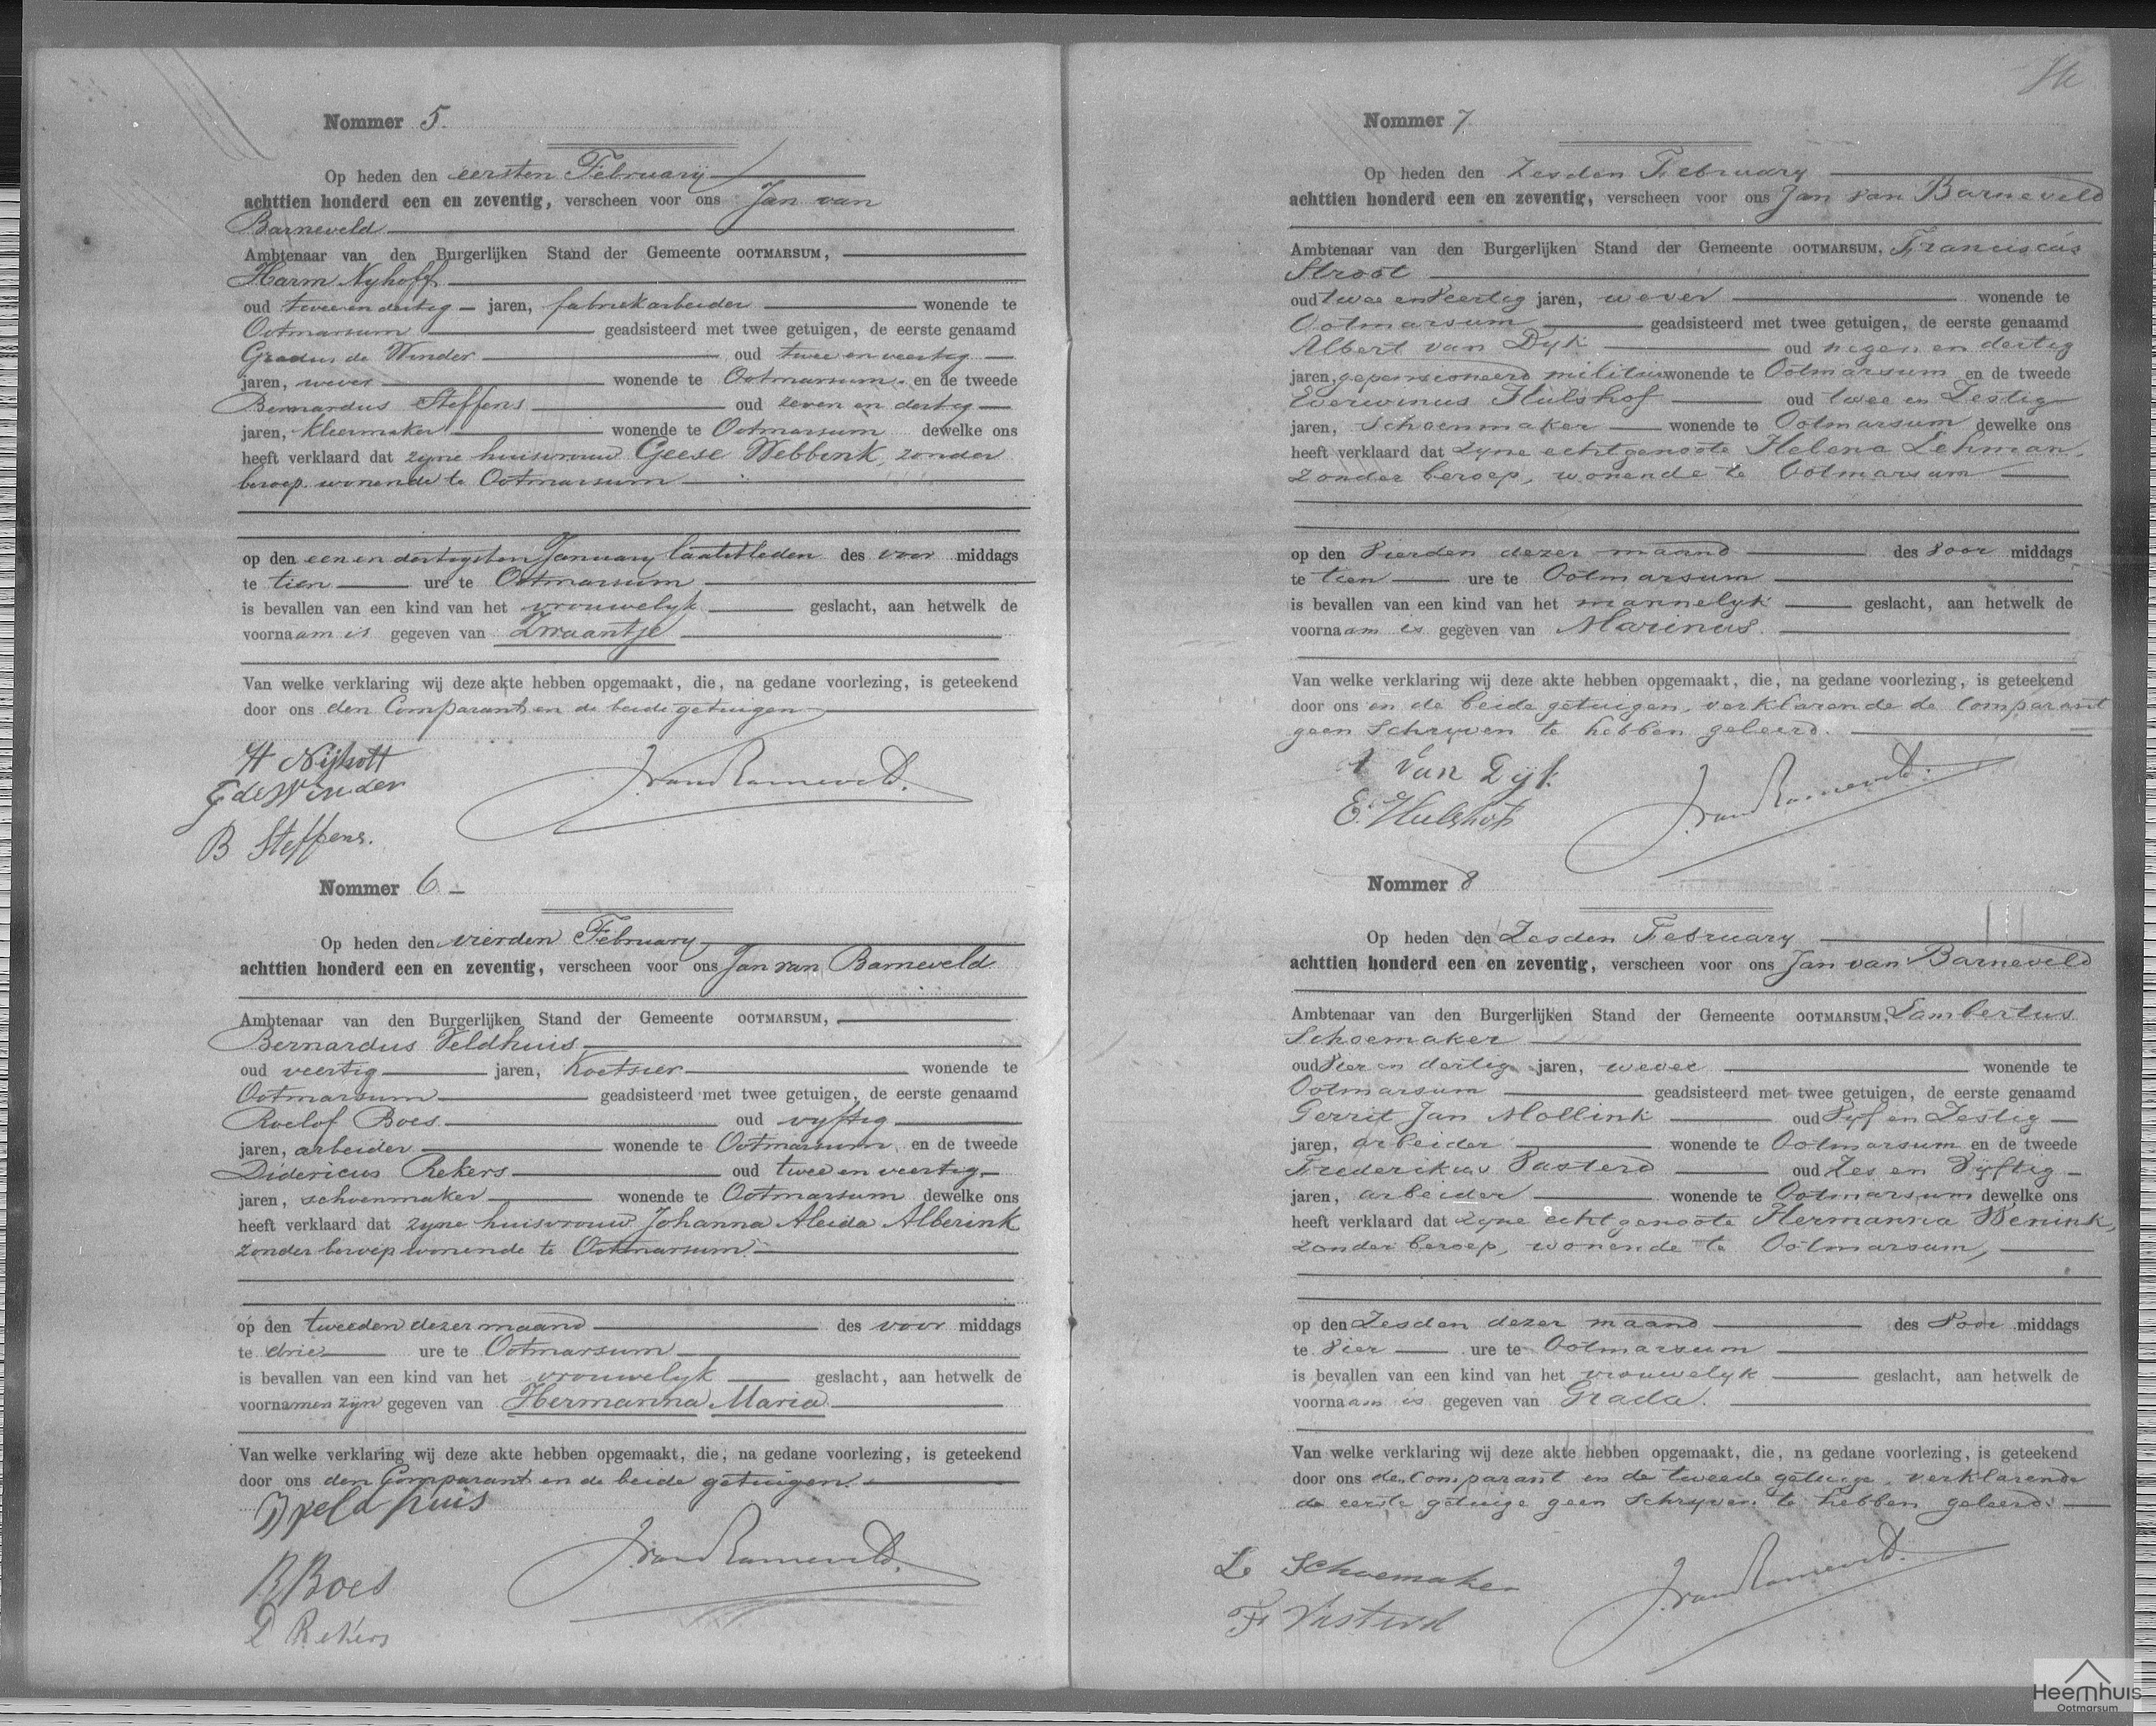 Nommer 5.
Op heden den eersten February
achttien honderd een en zeventig, verscheen voor ons Jan van
Barneveld
Ambtenaar van den Burgerlijken Stand der Gemeente OOTMARSUM,
Harm Nyhoff
oud twee en dertig jaren, fabriekarbeider wonende te
Ootmarsum geadsisteerd met twee getuigen, de eerste genaamd
Gradus de Winder oud twee en veertig
jaren, wever wonende te Ootmarsum en de tweede
Bernardus Steffens oud zeven en dertig
jaren, kleermaker wonende te Ootmarsum dewelke ons
heeft verklaard dat zyne huisvrouw Geese Webbink, zonder
beroep wonende te Ootmarsum
op den een en dertigsten January laatstleden des voor middags
te tien ure te Ootmarsum
is bevallen van een kind van het vrouwelyk geslacht, aan hetwelk de
voornaam is gegeven van Zwaantje
Van welke verklaring wij deze akte hebben opgemaakt, die, na gedane voorlezing, is geteekend
door ons den Comparant en de beide getuigen
H Nijhoff
G de Winder
JvanBarneveld.
B Steffens.
Nommer 6.
Op heden den vierden February
achttien honderd een en zeventig, verscheen voor ons Jan van Barneveld
Ambtenaar van den Burgerlijken Stand der Gemeente OOTMARSUM,
Bernardus Veldhuis
oud veertig jaren, Koetsier wonende te
Ootmarsum geadsisteerd met twee getuigen, de eerste genaamd
Roelof Boes oud vyftig
jaren, arbeider wonende te Ootmarsum en de tweede
Didericus Rekers oud twee en veertig
jaren, schoenmaker wonende te Ootmarsum dewelke ons
heeft verklaard dat zyne huisvrouw Johanna Aleida Alberink
zonder beroep wonende te Ootmarsum.
op den tweeden dezer maand des voor middags
te drie ure te Ootmarsum
is bevallen van een kind van het vrouwelyk geslacht, aan hetwelk de
voornamen zijn gegeven van Hermanna Maria
Van welke verklaring wij deze akte hebben opgemaakt, die, na gedane voorlezing, is geteekend
door ons den Comparant en de beide getuigen.
B veldhuis
JvanBarneveld.
R Boes
D Rekers
Nommer 7
Op heden den Zesden February
achttien honderd een en zeventig, verscheen voor ons Jan van Barneveld
Ambtenaar van den Burgerlijken Stand der Gemeente OOTMARSUM, Franciscus
Stroot
oud twee en veertig jaren, wever wonende te
Ootmarsum geadsisteerd met twee getuigen, de eerste genaamd
Albert van Dyk oud negen en dertig
jaren, gepensioneerd militair wonende te Ootmarsum en de tweede
Everwinus Hulshof oud twee en Zestig
jaren, Schoenmaker wonende te Ootmarsum dewelke ons
heeft verklaard dat Zyne echtgenoote Helena Lehman,
Zonder beroep, wonende te Ootmarsum
op den Vierden dezer maand des voor middags
te tien ure te Ootmarsum
is bevallen van een kind van het mannelyk geslacht, aan hetwelk de
voornaam is gegeven van Marinus.
Van welke verklaring wij deze akte hebben opgemaakt, die, na gedane voorlezing, is geteekend
door ons en de beide getuigen, verklarende de Comparant
geen Schryven te hebben geleerd.
A Van Dijk
E. Hulshof
JvanBarneveld.
Nommer 8
Op heden den Zesden February
achttien honderd een en zeventig, verscheen voor ons Jan van Barneveld
Ambtenaar van den Burgerlijken Stand der Gemeente OOTMARSUM, Lambertus
Schoemaker
oud Vier en dertig jaren, wever wonende te
Ootmarsum geadsisteerd met twee getuigen, de eerste genaamd
Gerrit Jan Mollink oud Vyf en Zestig
jaren, arbeider wonende te Ootmarsum en de tweede
Frederikus Vasterd oud Zes en Vijftig
jaren, arbeider wonende te Ootmarsum dewelke ons
heeft verklaard dat Zyne echtgenoote Hermanna Wenink,
Zonder beroep, wonende te Ootmarsum,
op den Zesden dezer maand des Voor middags
te Vier ure te Ootmarsum
is bevallen van een kind van het vrouwelyk geslacht, aan hetwelk de
voornaam is gegeven van Grada.
Van welke verklaring wij deze akte hebben opgemaakt, die, na gedane voorlezing, is geteekend
door ons de Comparant en de tweede getuige, verklarende
de eerste getuige geen Schryven te hebben geleerd.
L Schoemaker
JvanBarneveld.
F Vasterd
Heemhuis
Ootmarsum